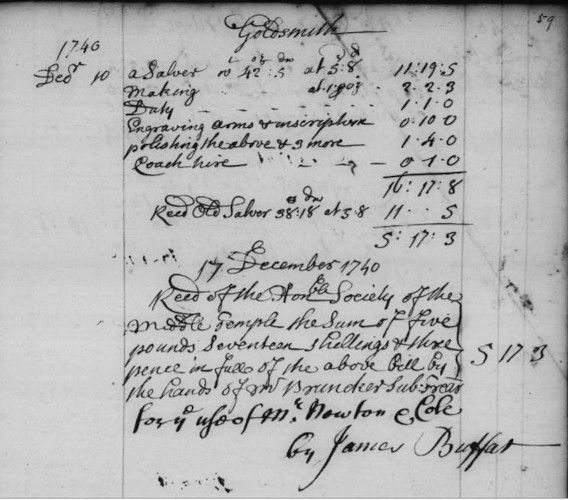 59
Goldsmith
1740
Decr 10 a Salver wt 42 oz : 5 dw at 5s : 8d 11 : 19 : 5
Making at 1s 2 : 2 : 3
Duty 1 : 1 : 0
Engraving arms & inscription 0 : 10 : 0
polishing the above & 3 more 1 : 4 : 0
Coach hire 0 : 1 : 0
16 : 17 : 8
Recd Old Salver 38 : 18 dw at 5 8 11 5
5 : 17 : 3
17 December 1740
Recd of the Honble Society of the
Middle Temple the Sum of five
pounds Seventeen Shillings & three
pence in full of the above Bill by 5 17 3
the hands of Mr Brundier Sub:Trear
for ye use of Mr. Newton & Cole
by James Buffar